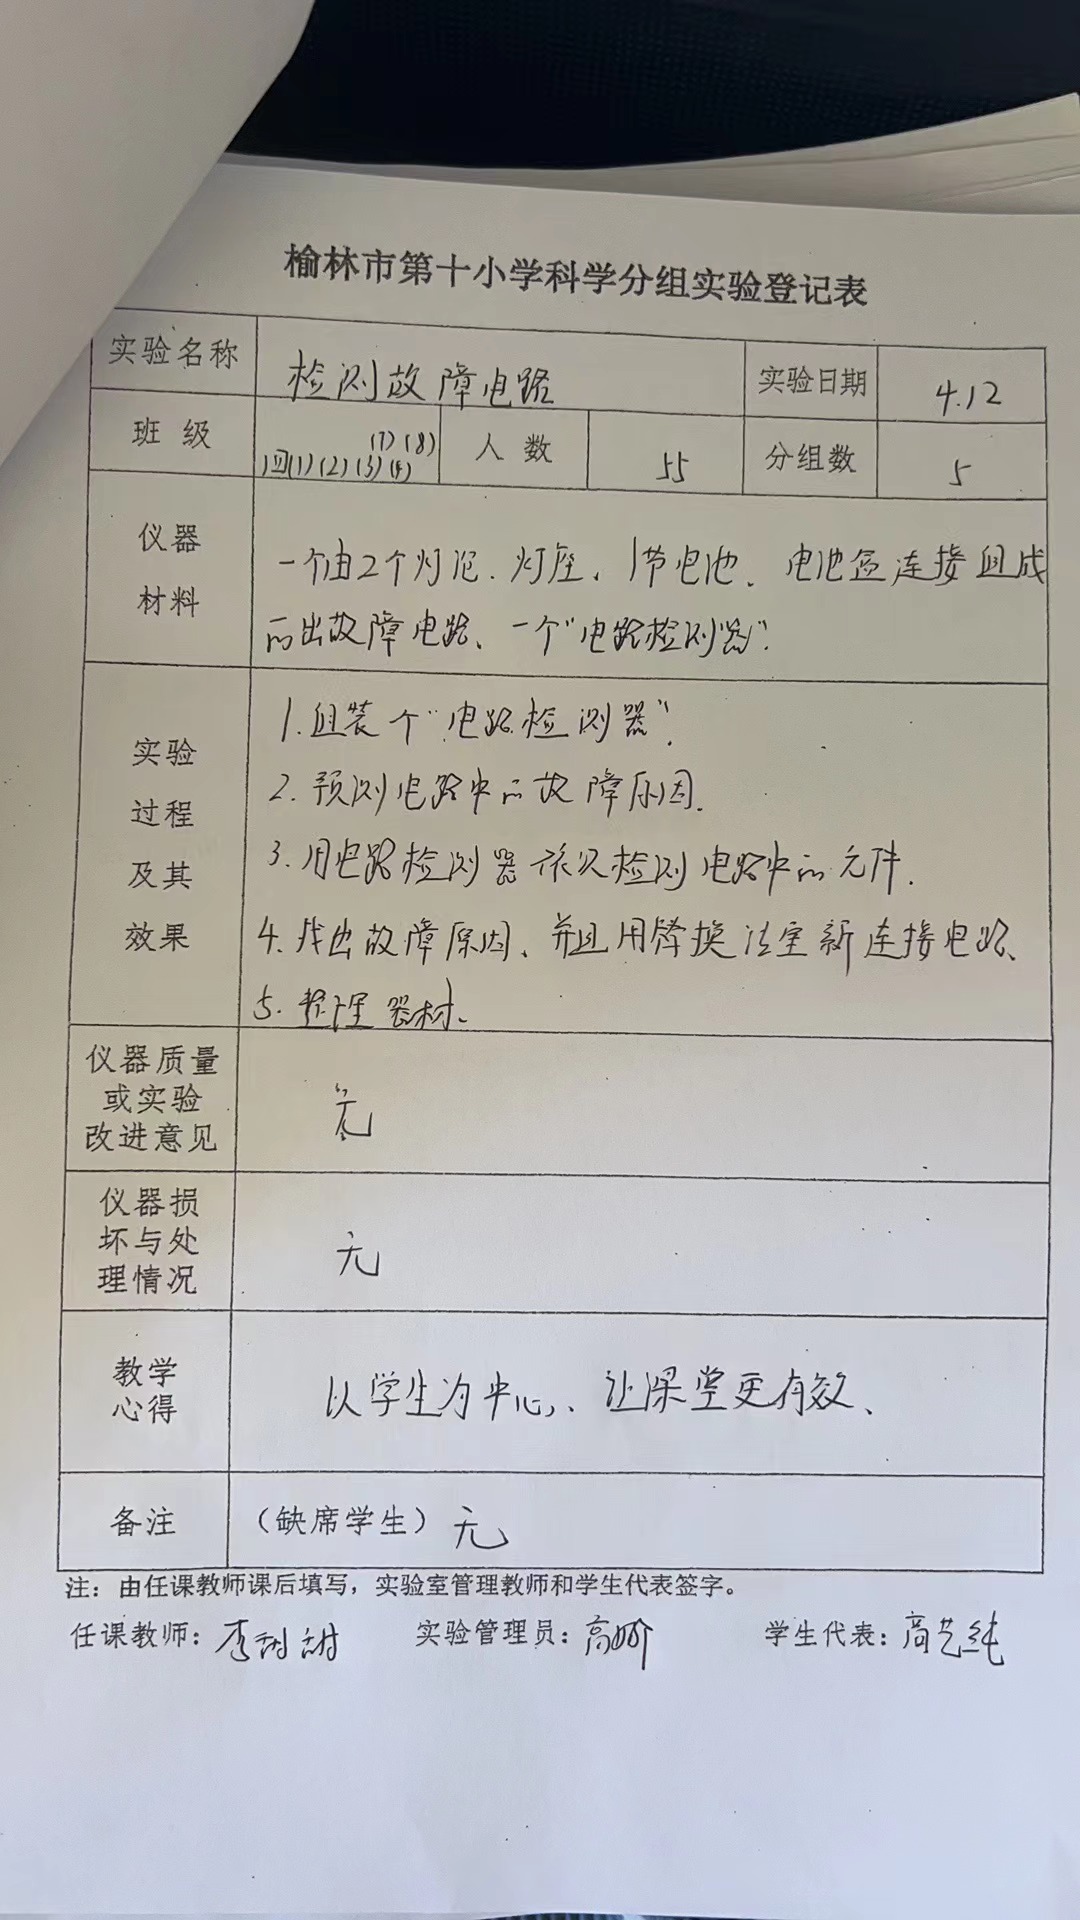 榆林市第十小学科学分组实验登记表
实验名称 检测故障电路 实验日期 4.12
班级 四(1)(2)(3)(4)(7)(8) 人数 55 分组数 5
仪器材料
一个由2个灯泡、灯座、1节电池、电池盒连接组成
的出故障电路、一个"电路检测器".
实验过程及其效果
1.组装个"电路检测器".
2.预测电路中的故障原因.
3.用电路检测器依次检测电路中的元件.
4.找出故障原因、并且用替换法重新连接电路、
5.整理器材、
仪器质量或实验改进意见
无
仪器损坏与处理情况
无
教学心得
以学生为中心、让课堂更有效、
备注 （缺席学生）无
注：由任课教师课后填写，实验室管理教师和学生代表签字。
任课教师：李甜甜 实验管理员：高 学生代表：高艺纯